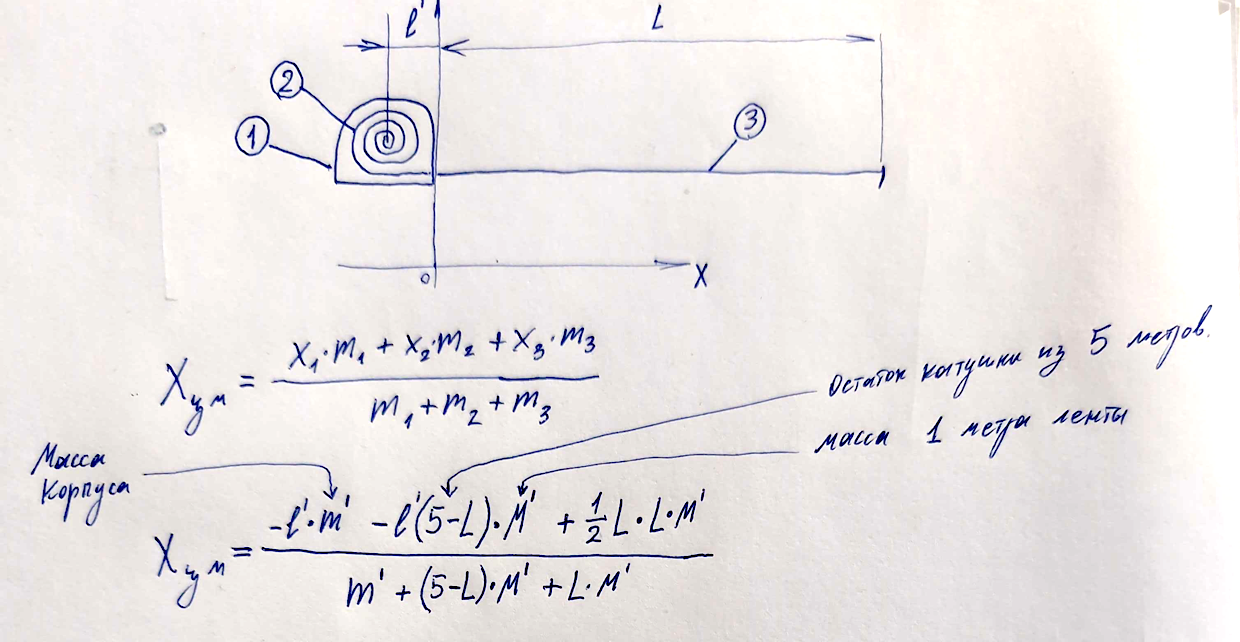 l' L
2
1
3
0 X
Xцм = (X₁·m₁ + X₂·m₂ + X₃·m₃) / (m₁ + m₂ + m₃)
Остаток катушки из 5 метров.
масса 1 метра ленты
Масса
Корпуса
Xцм = (-l'·m' - l'(5-L)·M' + ½L·L·M') / (m' + (5-L)·M' + L·M')